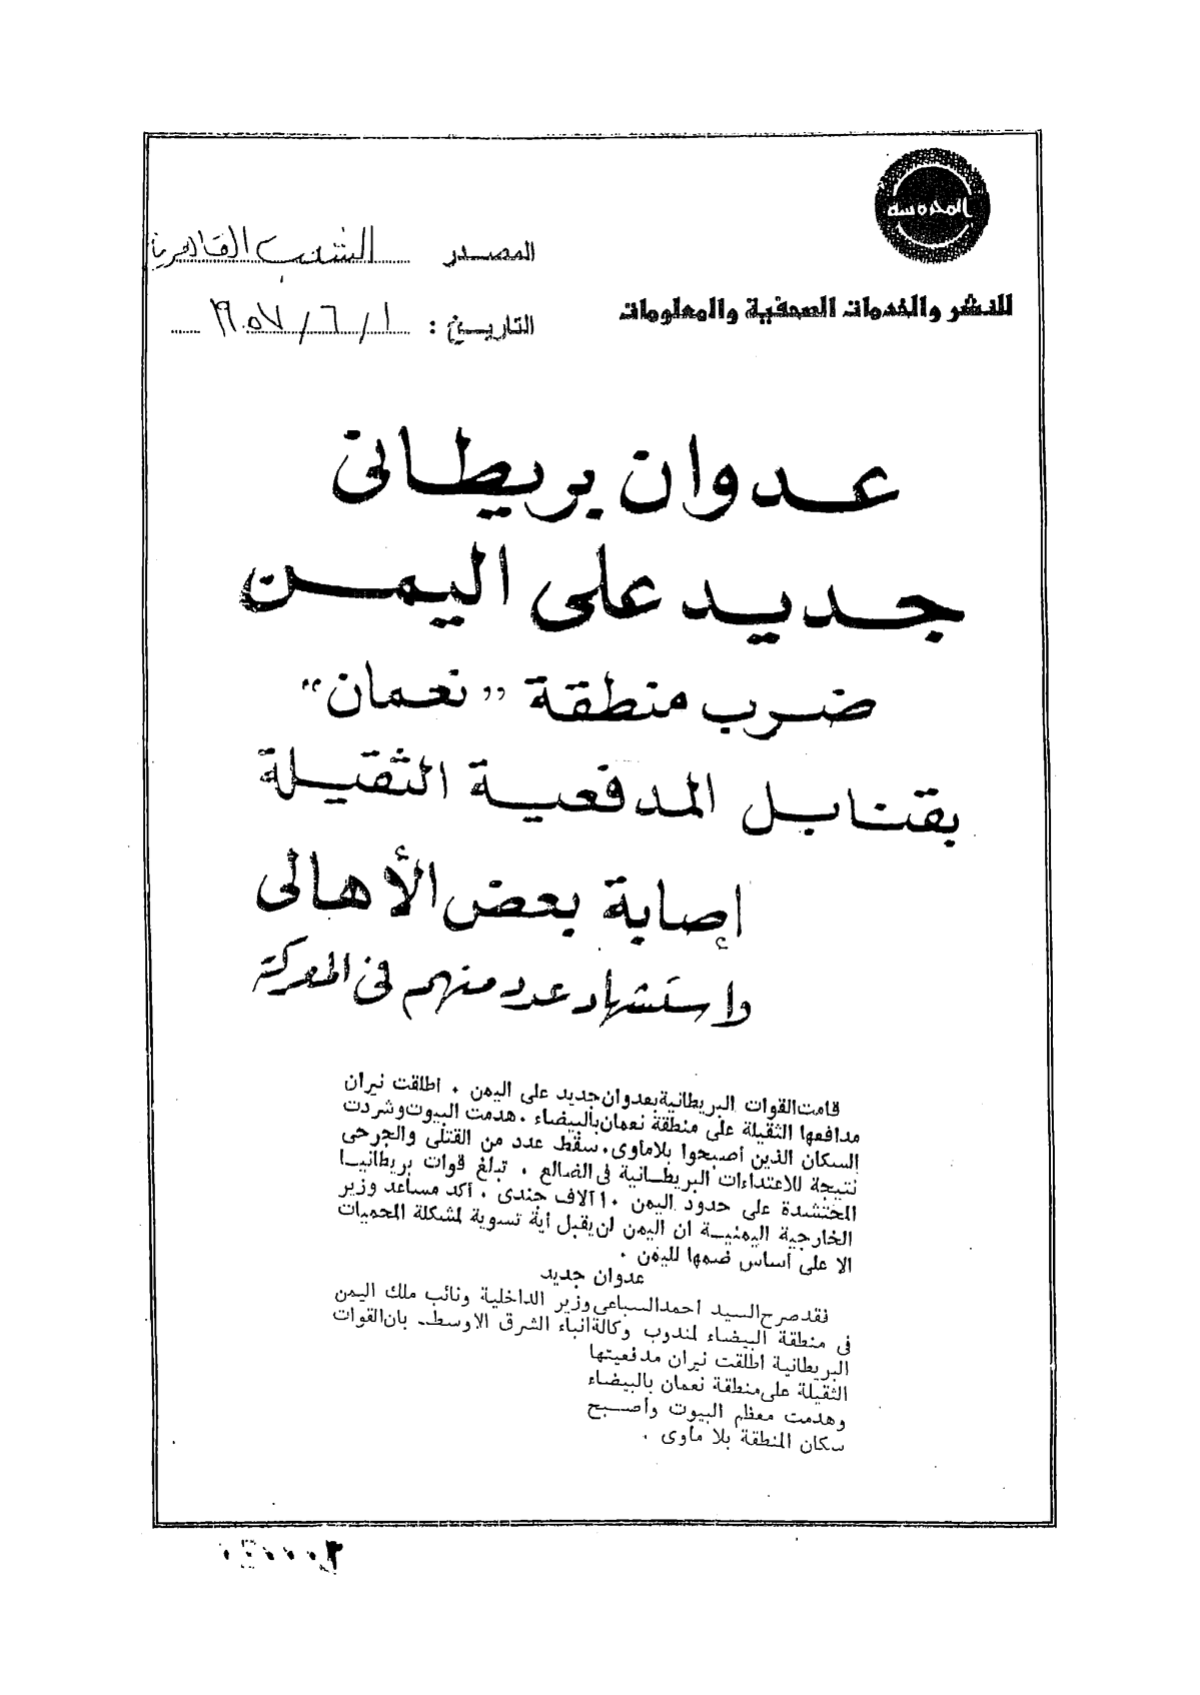 المحروسة
للنشر والخدمات الصحفية والمعلومات
المصدر الشعب القاهرية
التاريخ : ١ / ٦ / ١٩٥٧
عدوان بريطانى
جديد على اليمن
ضرب منطقة "نعمان"
بقنابل المدفعية الثقيلة
إصابة بعض الأهالى
واستشهاد عدد منهم فى المعركة
قامت القوات البريطانية بعدوان جديد على اليمن . اطلقت نيران
مدافعها الثقيلة على منطقة نعمان بالبيضاء . هدمت البيوت وشردت
السكان الذين أصبحوا بلا مأوى . سقط عدد من القتلى والجرحى
نتيجة للاعتداءات البريطانية فى الضالع . تبلغ قوات بريطانيا
المحتشدة على حدود اليمن ١٠ آلاف جندى . أكد مساعد وزير
الخارجية اليمنية ان اليمن لن يقبل أية تسوية لمشكلة المحميات
الا على أساس ضمها لليمن .
عدوان جديد
فقد صرح السيد احمد السباعى وزير الداخلية ونائب ملك اليمن
فى منطقة البيضاء لمندوب وكالة انباء الشرق الاوسط ـ بان القوات
البريطانية اطلقت نيران مدفعيتها
الثقيلة على منطقة نعمان بالبيضاء
وهدمت معظم البيوت وأصبح
سكان المنطقة بلا مأوى .